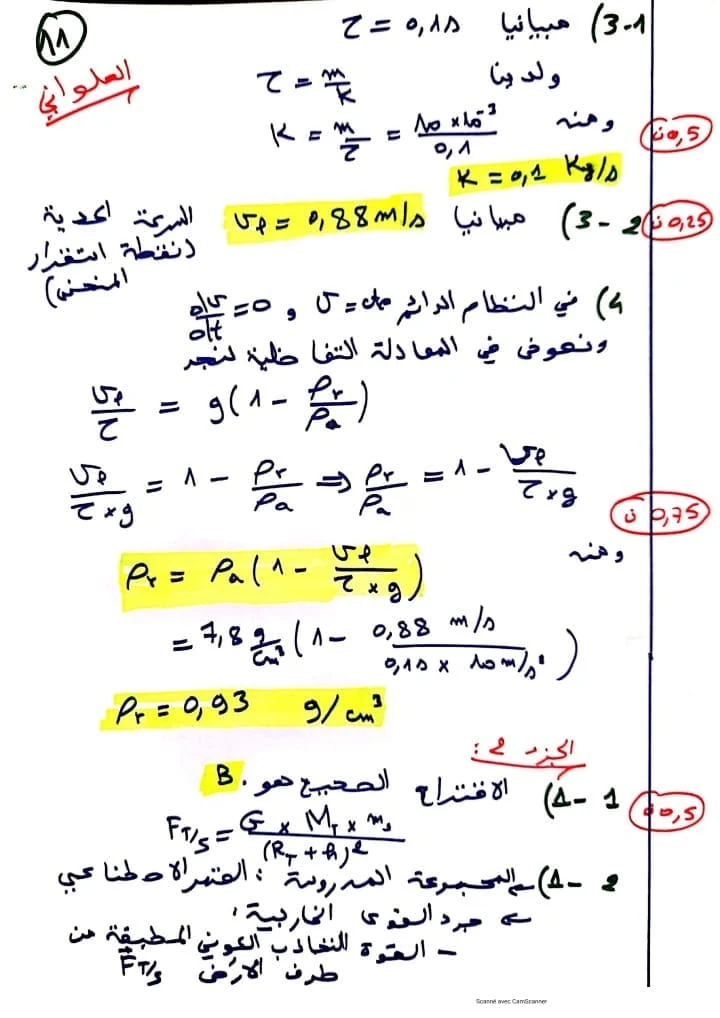 11
العلواني
3-1) مبيانيا τ = 0,1s
ولدينا τ = m/k
ومنه K = m/τ = 10×10⁻³/0,1
0,5 ن
K = 0,1 Kg/s
3-2) مبيانيا vₗ = 0,88 m/s السرعة الحدية
0,25 ن
(نقطة استقرار المنحنى)
4) في النظام الدائم v = cte و dv/dt = 0
ونعوض في المعادلة التفاضلية لنجد
vₗ/τ = g(1 - ρr/ρa)
vₗ/(τ×g) = 1 - ρr/ρa ⇒ ρr/ρa = 1 - vₗ/(τ×g)
0,75 ن
ومنه
ρr = ρa(1 - vₗ/(τ×g))
= 7,8 g/cm³ (1 - 0,88 m/s / (0,1s × 10 m/s²))
ρr = 0,93 g/cm³
الجزء 2:
1-1) الاقتراح الصحيح هو B.
0,5 ن
F_T/S = G × M_T × m_s / (R_T + h)²
1-2) المجموعة المدروسة: القمر الاصطناعي
جرد القوى الخارجية:
- القوة للتجاذب الكوني المطبقة من
طرف الأرض F_T/S
Scanné avec CamScanner